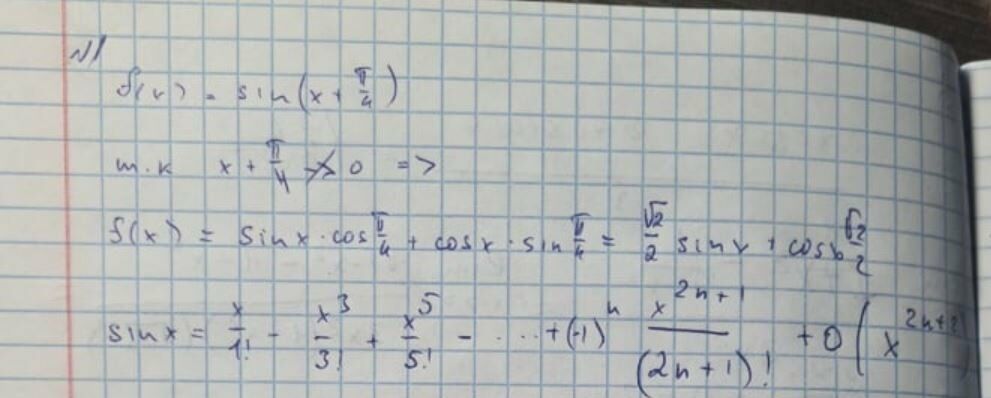 N1
f(x) = sin(x + π/4)
т.к x + π/4 ↛ 0 =>
f(x) = sin x · cos π/4 + cos x · sin π/4 = √2/2 sin x + cos x √2/2
sin x = x/1! - x^3/3! + x^5/5! - ... + (-1)^n x^(2n+1)/(2n+1)! + o(x^(2n+2)